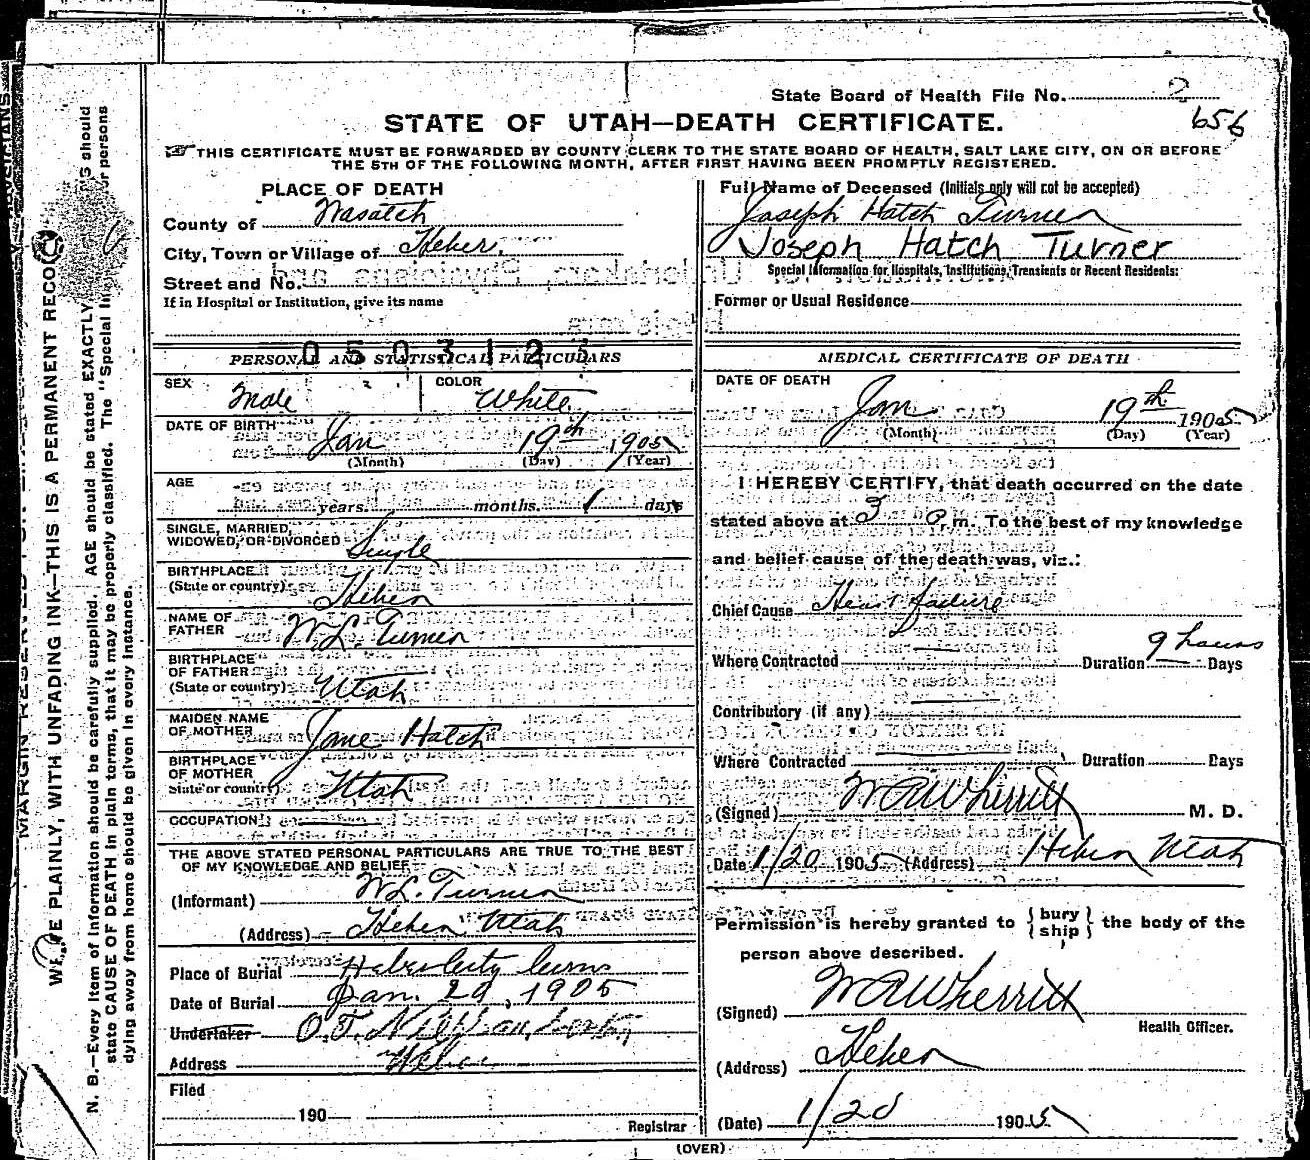 State Board of Health File No. 2
656
STATE OF UTAH—DEATH CERTIFICATE.
THIS CERTIFICATE MUST BE FORWARDED BY COUNTY CLERK TO THE STATE BOARD OF HEALTH, SALT LAKE CITY, ON OR BEFORE
THE 5TH OF THE FOLLOWING MONTH, AFTER FIRST HAVING BEEN PROMPTLY REGISTERED.
PLACE OF DEATH
County of Wasatch
City, Town or Village of Heber,
Street and No.
If in Hospital or Institution, give its name
0503125
PERSONAL AND STATISTICAL PARTICULARS
SEX Male
COLOR White
DATE OF BIRTH Jan 19th 1905
(Month) (Day) (Year)
AGE
years. months. 1 days
SINGLE, MARRIED,
WIDOWED, OR DIVORCED Single
BIRTHPLACE
(State or country) Heber
NAME OF
FATHER W. L. Turner
BIRTHPLACE
OF FATHER
(State or country) Utah
MAIDEN NAME
OF MOTHER Jane Hatch
BIRTHPLACE
OF MOTHER
State or country) Utah
OCCUPATION
THE ABOVE STATED PERSONAL PARTICULARS ARE TRUE TO THE BEST
OF MY KNOWLEDGE AND BELIEF
(Informant) W L. Turner
(Address) Heber Utah
Place of Burial Heber City
Date of Burial Jan. 20, 1905
Undertaker O. T.
Address Heber
Filed
190
Registrar
Full Name of Deceased (Initials only will not be accepted)
Joseph Hatch Turner
Joseph Hatch Turner
Special Information for Hospitals, Institutions, Transients or Recent Residents:
Former or Usual Residence
MEDICAL CERTIFICATE OF DEATH
DATE OF DEATH
Jan 19th 1905
(Month) (Day) (Year)
I HEREBY CERTIFY, that death occurred on the date
stated above at 3 P. m. To the best of my knowledge
and belief cause of the death was, viz.:
Chief Cause Heart failure
Where Contracted Duration 9 hours Days
Contributory (if any)
Where Contracted Duration Days
(Signed) W R Wherritt M. D.
Date 1/20 1905 (Address) Heber Utah
Permission is hereby granted to {bury ship} the body of the
person above described.
(Signed) W R Wherritt
Health Officer.
(Address) Heber
(Date) 1/20 1905
(OVER)
WRITE PLAINLY, WITH UNFADING INK—THIS IS A PERMANENT RECO
N. B.—Every item of information should be carefully supplied. AGE should be stated EXACTLY should
state CAUSE OF DEATH in plain terms, that it may be properly classified. The "Special In or persons
dying away from home should be given in every instance.